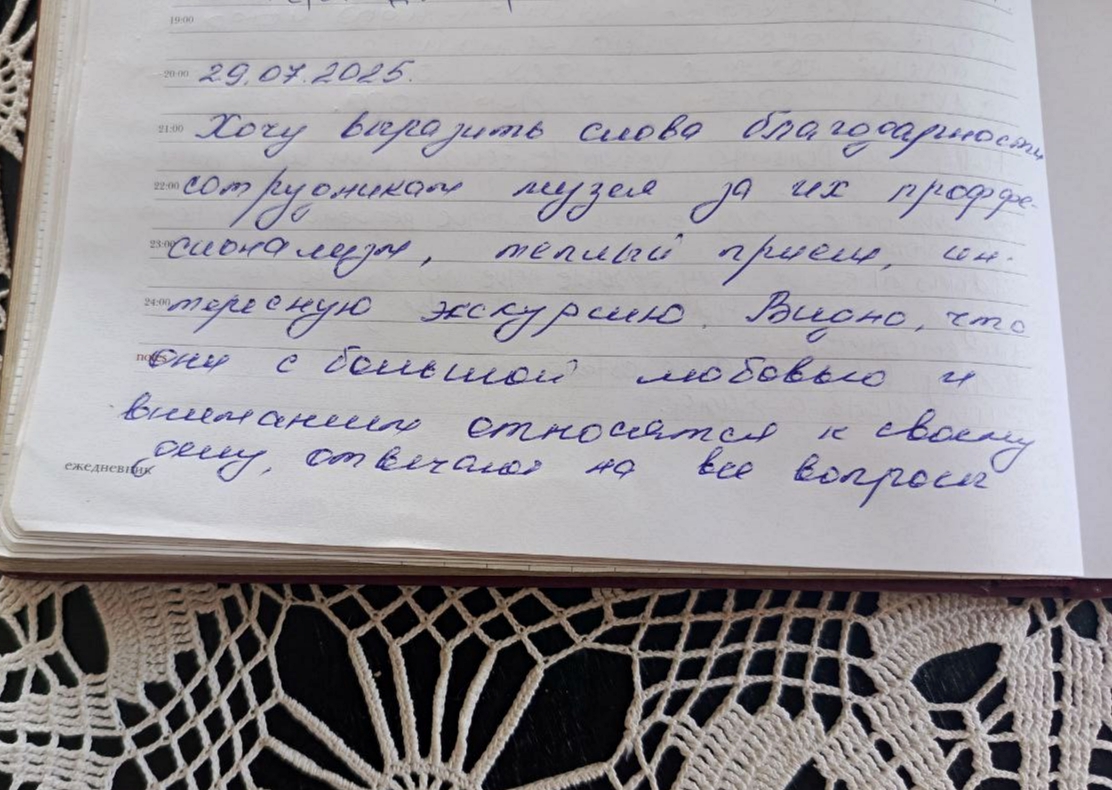 19:00
20:00 29.07.2025.
21:00 Хочу выразить слова благодарности
22:00 сотрудникам музея за их проффе-
23:00 сионализм, теплый прием, ин-
24:00 тересную экскурсию. Видно, что
notes они с большой любовью и
вниманием относятся к своему
ежедневник делу, отвечают на все вопросы